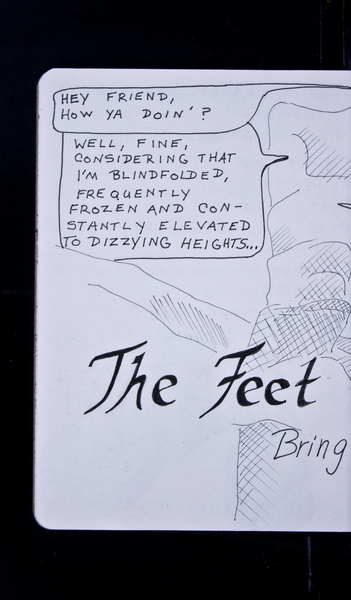 HEY FRIEND,
HOW YA DOIN'?
WELL, FINE,
CONSIDERING THAT
I'M BLINDFOLDED,
FREQUENTLY
FROZEN AND CON-
STANTLY ELEVATED
TO DIZZYING HEIGHTS...
The Feet
Bring